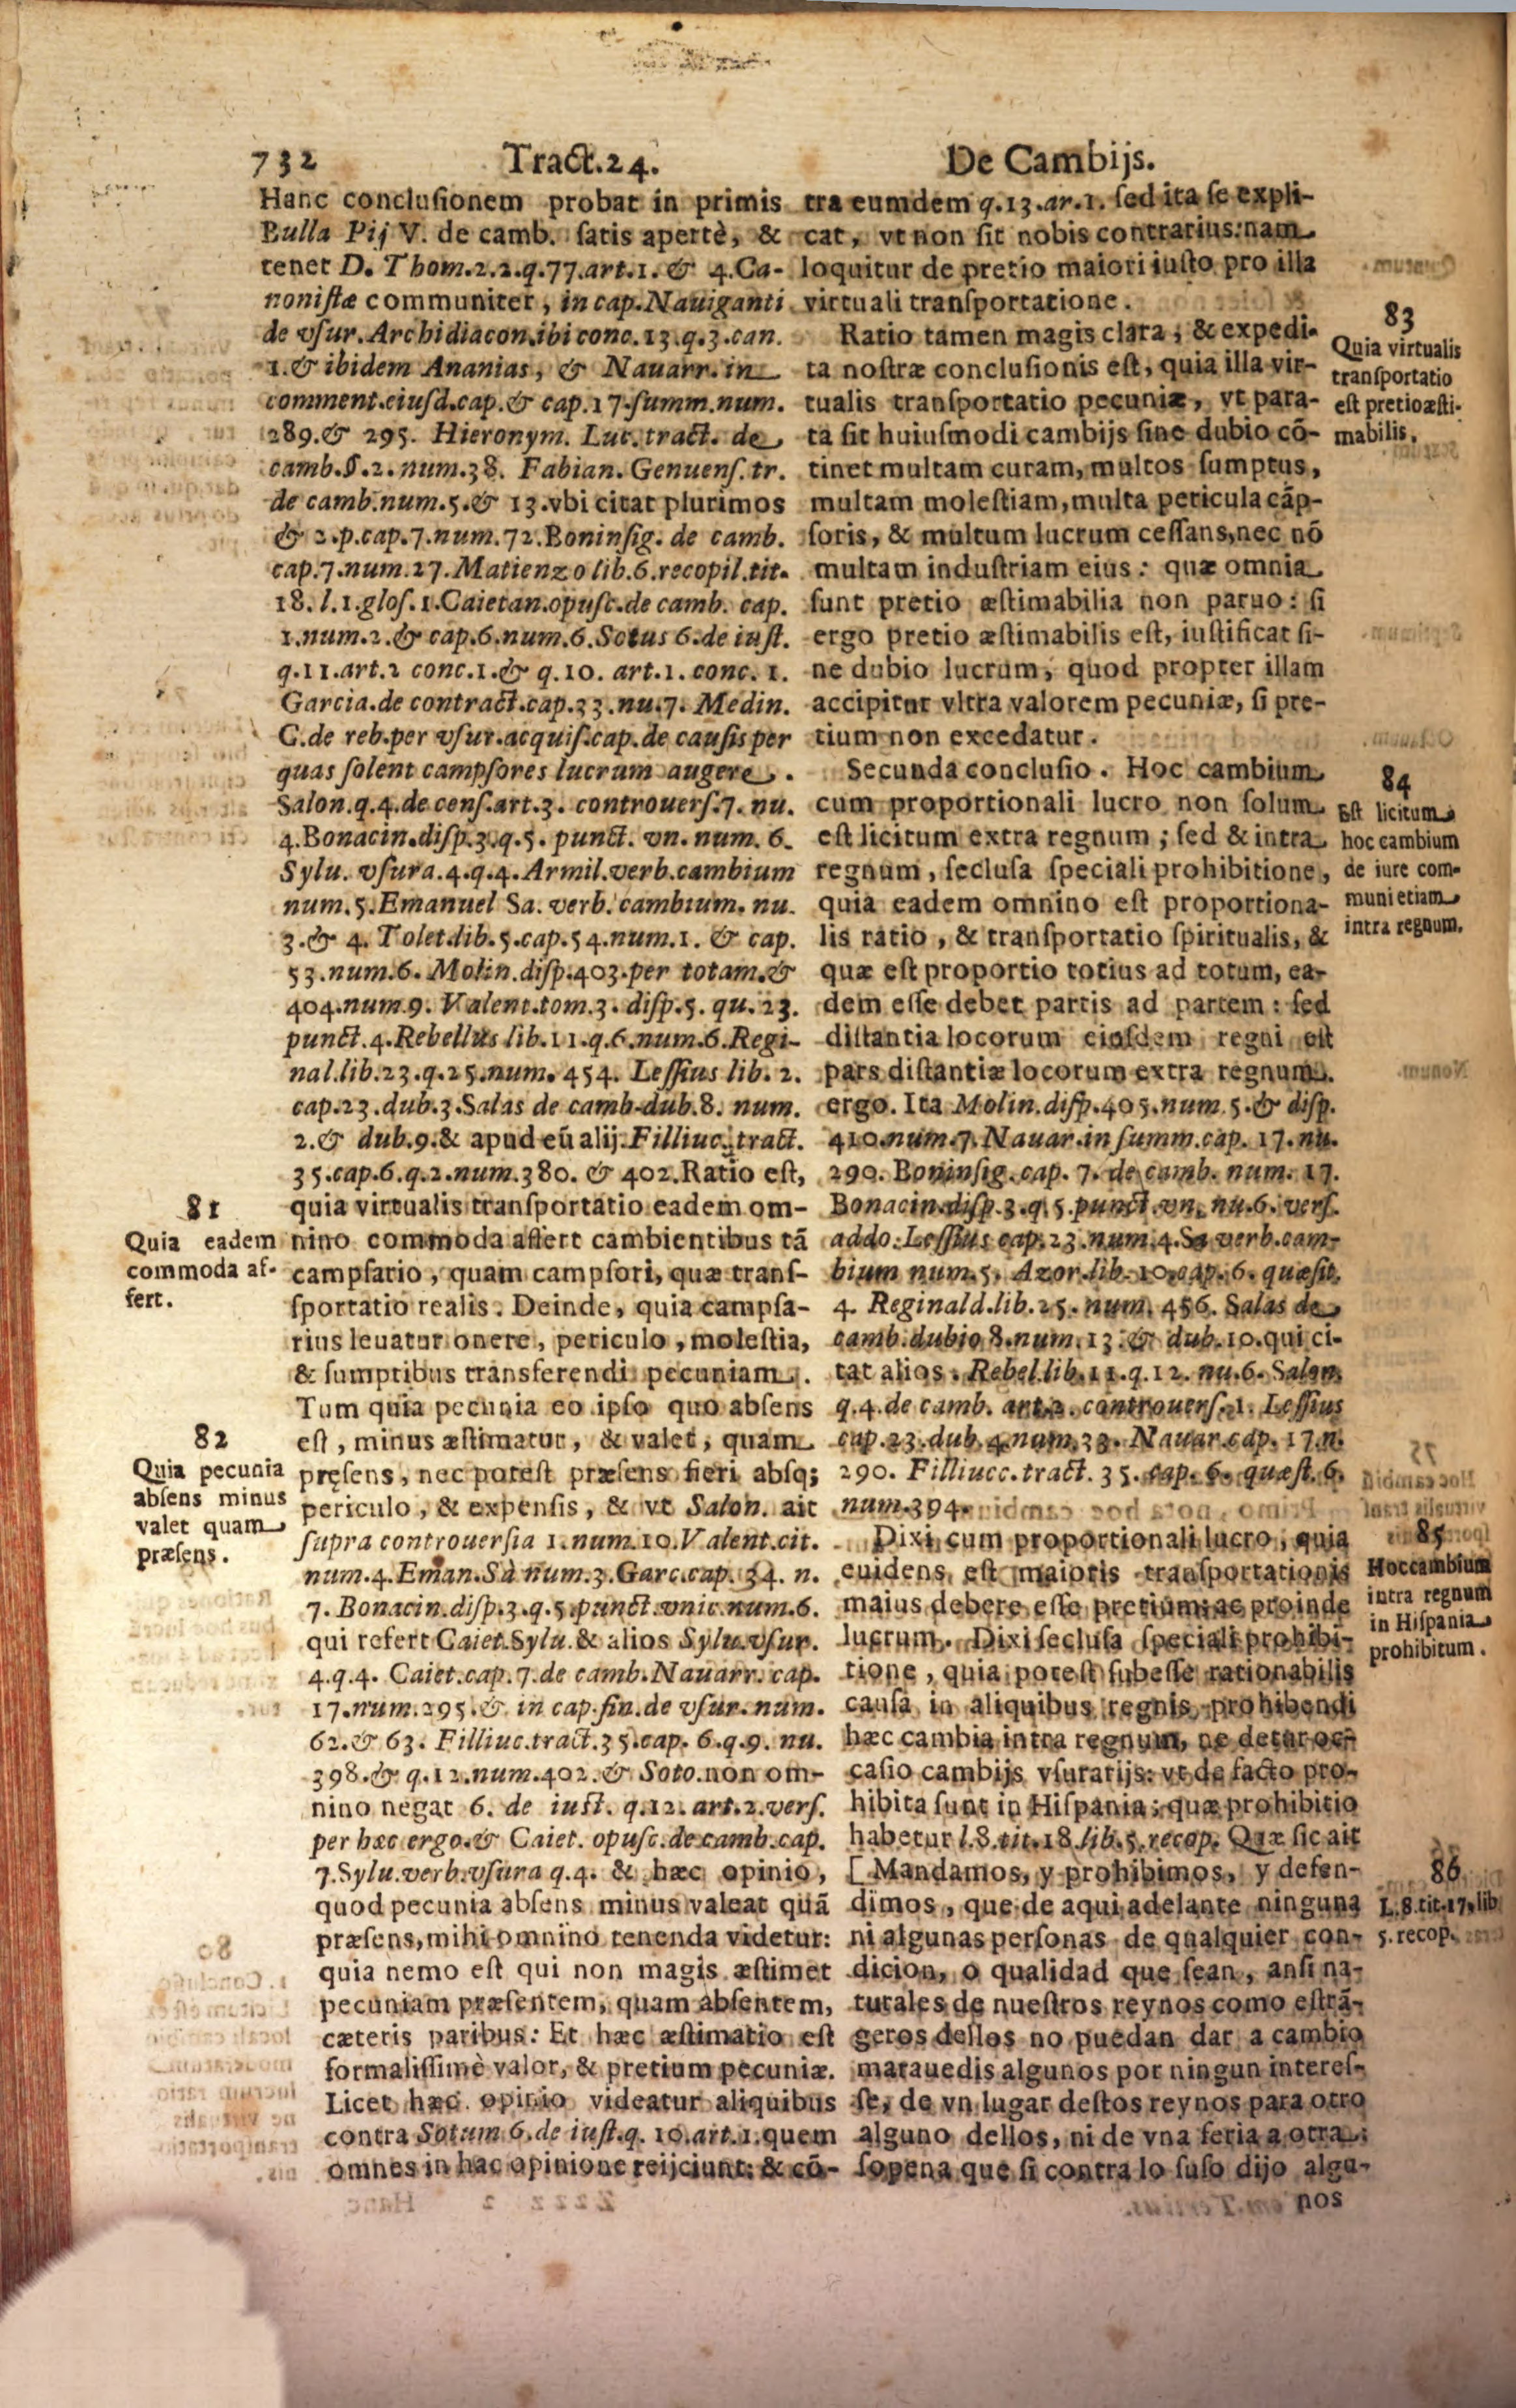 732 Tract.24. De Cambijs.
Hanc conclusionem probat in primis
Bulla Pij V. de camb. satis apertè, &
tenet D. Thom.2.2.q.77.art.1. & 4.Ca-
nonistæ communiter, in cap.Nauiganti
de vsur.Archidiacon.ibi conc.13.q.3.can.
1.& ibidem Ananias, & Nauarr.in
comment.eiusd.cap.& cap.17.summ.num.
289.& 295. Hieronym. Luc.tract. de
camb.§.2.num.38. Fabian. Genuens. tr.
de camb.num.5.& 13.vbi citat plurimos
& 2.p.cap.7.num.72.Boninsig. de camb.
cap.7.num.27.Matienzo lib.6.recopil.tit.
18. l.1.glos.1.Caietan.opusc.de camb. cap.
1.num.2.& cap.6.num.6.Sotus 6.de iust.
q.11.art.2 conc.1.& q.10. art.1. conc. 1.
Garcia.de contract.cap.33.nu.7. Medin.
C.de reb.per vsur.acquis.cap.de causis per
quas solent campsores lucrum augere.
Salon.q.4.de cens.art.3. controuers.7. nu.
4.Bonacin.disp.3.q.5. punct. vn. num. 6.
Sylu. vsura.4.q.4.Armil.verb.cambium
num.5.Emanuel Sa. verb. cambium. nu.
3.& 4. Tolet.lib.5.cap.54.num.1. & cap.
53.num.6. Molin.disp.403.per totam.&
404.num.9. Valent.tom.3. disp.5. qu. 23.
punct.4.Rebellus lib.11.q.6.num.6.Regi-
nal.lib.23.q.25.num. 454. Lessius lib. 2.
cap.23.dub.3.Salas de camb.dub.8. num.
2.& dub.9.& apud eũ alij.Filliuc.tract.
35.cap.6.q.2.num.380. & 402.Ratio est,
quia virtualis transportatio eadem om-
nino commoda affert cambientibus tã
campsario, quam campsori, quæ trans-
sportatio realis. Deinde, quia campsa-
rius leuatur onere, periculo, molestia,
& sumptibus transferendi pecuniam.
Tum quia pecunia eo ipso quo absens
est, minus æstimatur, & valet, quam
pręsens, nec potest præsens fieri absq;
periculo, & expensis, & vt Salon. ait
supra controuersia 1.num.10.Valent.cit.
num.4.Eman.Sà num.3.Garc.cap. 34. n.
7. Bonacin.disp.3.q.5.punct.vnic.num.6.
qui refert Caiet.Sylu.& alios Sylu.vsur.
4.q.4. Caiet.cap.7.de camb.Nauarr. cap.
17.num.295.& in cap.fin.de vsur.num.
62.& 63. Filliuc.tract.35.cap. 6.q.9. nu.
398.& q.12.num.402.& Soto.non om-
nino negat 6. de iust. q.12. art.2.vers.
per hæc ergo.& Caiet. opusc.de camb.cap.
7.Sylu.verb.vsura q.4. & hæc opinio,
quod pecunia absens minus valeat quã
præsens,mihi omnino tenenda videtur:
quia nemo est qui non magis æstimet
pecuniam præsentem, quam absentem,
cæteris paribus: Et hæc æstimatio est
formalissimè valor, & pretium pecuniæ.
Licet hæc opinio videatur aliquibus
contra Sotum 6.de iust.q. 10.art.1.quem
omnes in hac opinione reijciunt: & cõ-
81
Quia eadem
commoda af-
fert.
82
Quia pecunia
absens minus
valet quam
præsens.
tra eumdem q.13.ar.1. sed ita se expli-
cat, vt non sit nobis contrarius:nam
loquitur de pretio maiori iusto pro illa
virtuali transportatione.
Ratio tamen magis clara, & expedi-
ta nostræ conclusionis est, quia illa vir-
tualis transportatio pecuniæ, vt para-
ta sit huiusmodi cambijs sine dubio cõ-
tinet multam curam, multos sumptus,
multam molestiam,multa pericula cãp-
soris, & multum lucrum cessans,nec nõ
multam industriam eius: quæ omnia
sunt pretio æstimabilia non paruo: si
ergo pretio æstimabilis est, iustificat si-
ne dubio lucrum, quod propter illam
accipitur vltra valorem pecuniæ, si pre-
tium non excedatur.
Secunda conclusio. Hoc cambium
cum proportionali lucro non solum
est licitum extra regnum; sed & intra
regnum, seclusa speciali prohibitione,
quia eadem omnino est proportiona-
lis ratio, & transportatio spiritualis, &
quæ est proportio totius ad totum, ea-
dem esse debet partis ad partem: sed
distantia locorum eiusdem regni est
pars distantiæ locorum extra regnum.
ergo. Ita Molin.disp.405.num.5.& disp.
410.num.7.Nauar.in summ.cap. 17.nu.
290. Boninsig.cap. 7. de camb. num. 17.
Bonacin.disp.3.q.5.punct.vn. nu.6. vers.
addo.Lessius cap.23.num.4.Sa verb.cam-
bium num.5. Azor.lib. 10.cap. 6. quæsit.
4. Reginald.lib.25.num. 456. Salas de
camb.dubio 8.num.13.& dub.10.qui ci-
tat alios. Rebel.lib.11.q.12. nu.6. Salon.
q.4.de camb. art.2. controuers.1. Lessius
cap.23.dub.4.num.33. Nauar.cap. 17.n.
290. Filliucc.tract. 35. cap. 6. quæst. 6.
num.394.
Dixi cum proportionali lucro, quia
euidens est maioris transportationis
maius debere esse pretium:ac proinde
lucrum. Dixi seclusa speciali prohibi-
tione, quia potest subesse rationabilis
causa in aliquibus regnis prohibendi
hæc cambia intra regnum, ne detur oc-
casio cambijs vsurarijs: vt de facto pro-
hibita sunt in Hispania; quæ prohibitio
habetur l.8.tit.18.lib.5.recop. Quæ sic ait
[Mandamos, y prohibimos, y defen-
dimos, que de aqui adelante ninguna
ni algunas personas de qualquier con-
dicion, o qualidad que sean, ansi na-
turales de nuestros reynos como estrã-
geros dellos no puedan dar a cambio
marauedis algunos por ningun interes-
se, de vn lugar destos reynos para otro
alguno dellos, ni de vna feria a otra:
sopena que si contra lo suso dijo algu-
nos
83
Quia virtualis
transportatio
est pretio æsti-
mabilis.
84
Est licitum
hoc cambium
de iure com-
muni etiam
intra regnum.
85
Hoc cambium
intra regnum
in Hispania
prohibitum.
86
L.8.tit.17.lib
5.recop.